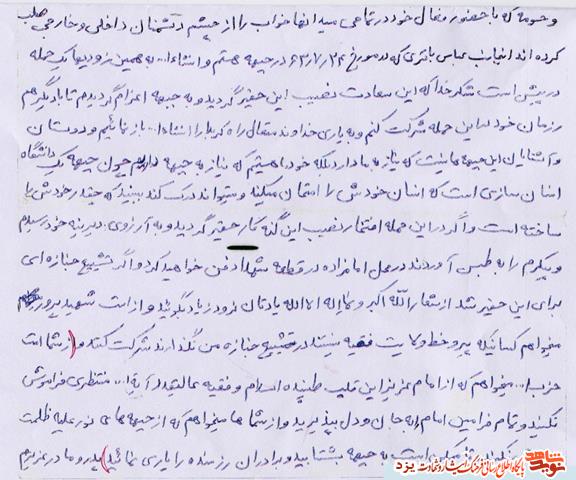 و حومه که با حضور فعال خود در تمامی میدانها خواب را از چشم دشمنان داخلی و خارجی سلب
کرده اند اینجانب عباس باقری که در مورخ ۶۳/۷/۲۴ در جبهه هستم و انشاءا... به همین زودیها یک حمله
در پیش است شکر خدا که این سعادت نصیب این حقیر گردید و به جبهه اعزام گردیدم تا با دیگر هم
رزمان خود در این حمله شرکت کنم و به یاری خداوند متعال راه کربلا را انشاءا... باز نمائیم و دوستان
و آشنایان این جبهه ها نیست که نیاز به ما دارد بلکه خود ما هستیم که نیاز به جبهه داریم چون جبهه یک دانشگاه
انسان سازی است که انسان خودش را امتحان میکند و میتواند درک کند ببیند که چقدر خودش را
ساخته است و اگر در این حمله افتخار نصیب این گنه کار حقیر گردید و به آرزوی دیرینه خود رسیدم
و پیکرم را به طبس آوردند در محل امامزاده در قطعه شهدا دفن خواهید کرد و اگر تشییع جنازه ای
برای این حقیر شد از شعار الله اکبر و لااله الا الله یادتان نرود زیاد بگوئید و از امت شهید پرور
میخواهم کسانیکه پیرو خط ولایت فقیه نیستند در تشییع جنازه من نگذارند شرکت کنند و از شما امت
حزب ا... میخواهم که از امام عزیز این قلب طپنده اسلام و فقیه عالیقدر آیة ا... منتظری فراموش
نکنید و تمام فرامین امام را به جان و دل بپذیرید و از شما ها میخواهم که از جبهه های نور علیه ظلمت
است به جبهه بشتابید و برادران رزمنده را یاری نمائید پدر و مادر عزیزم
نوید شاهد
پایگاه اطلاع رسانی فرهنگ ایثار و شهادت یزد